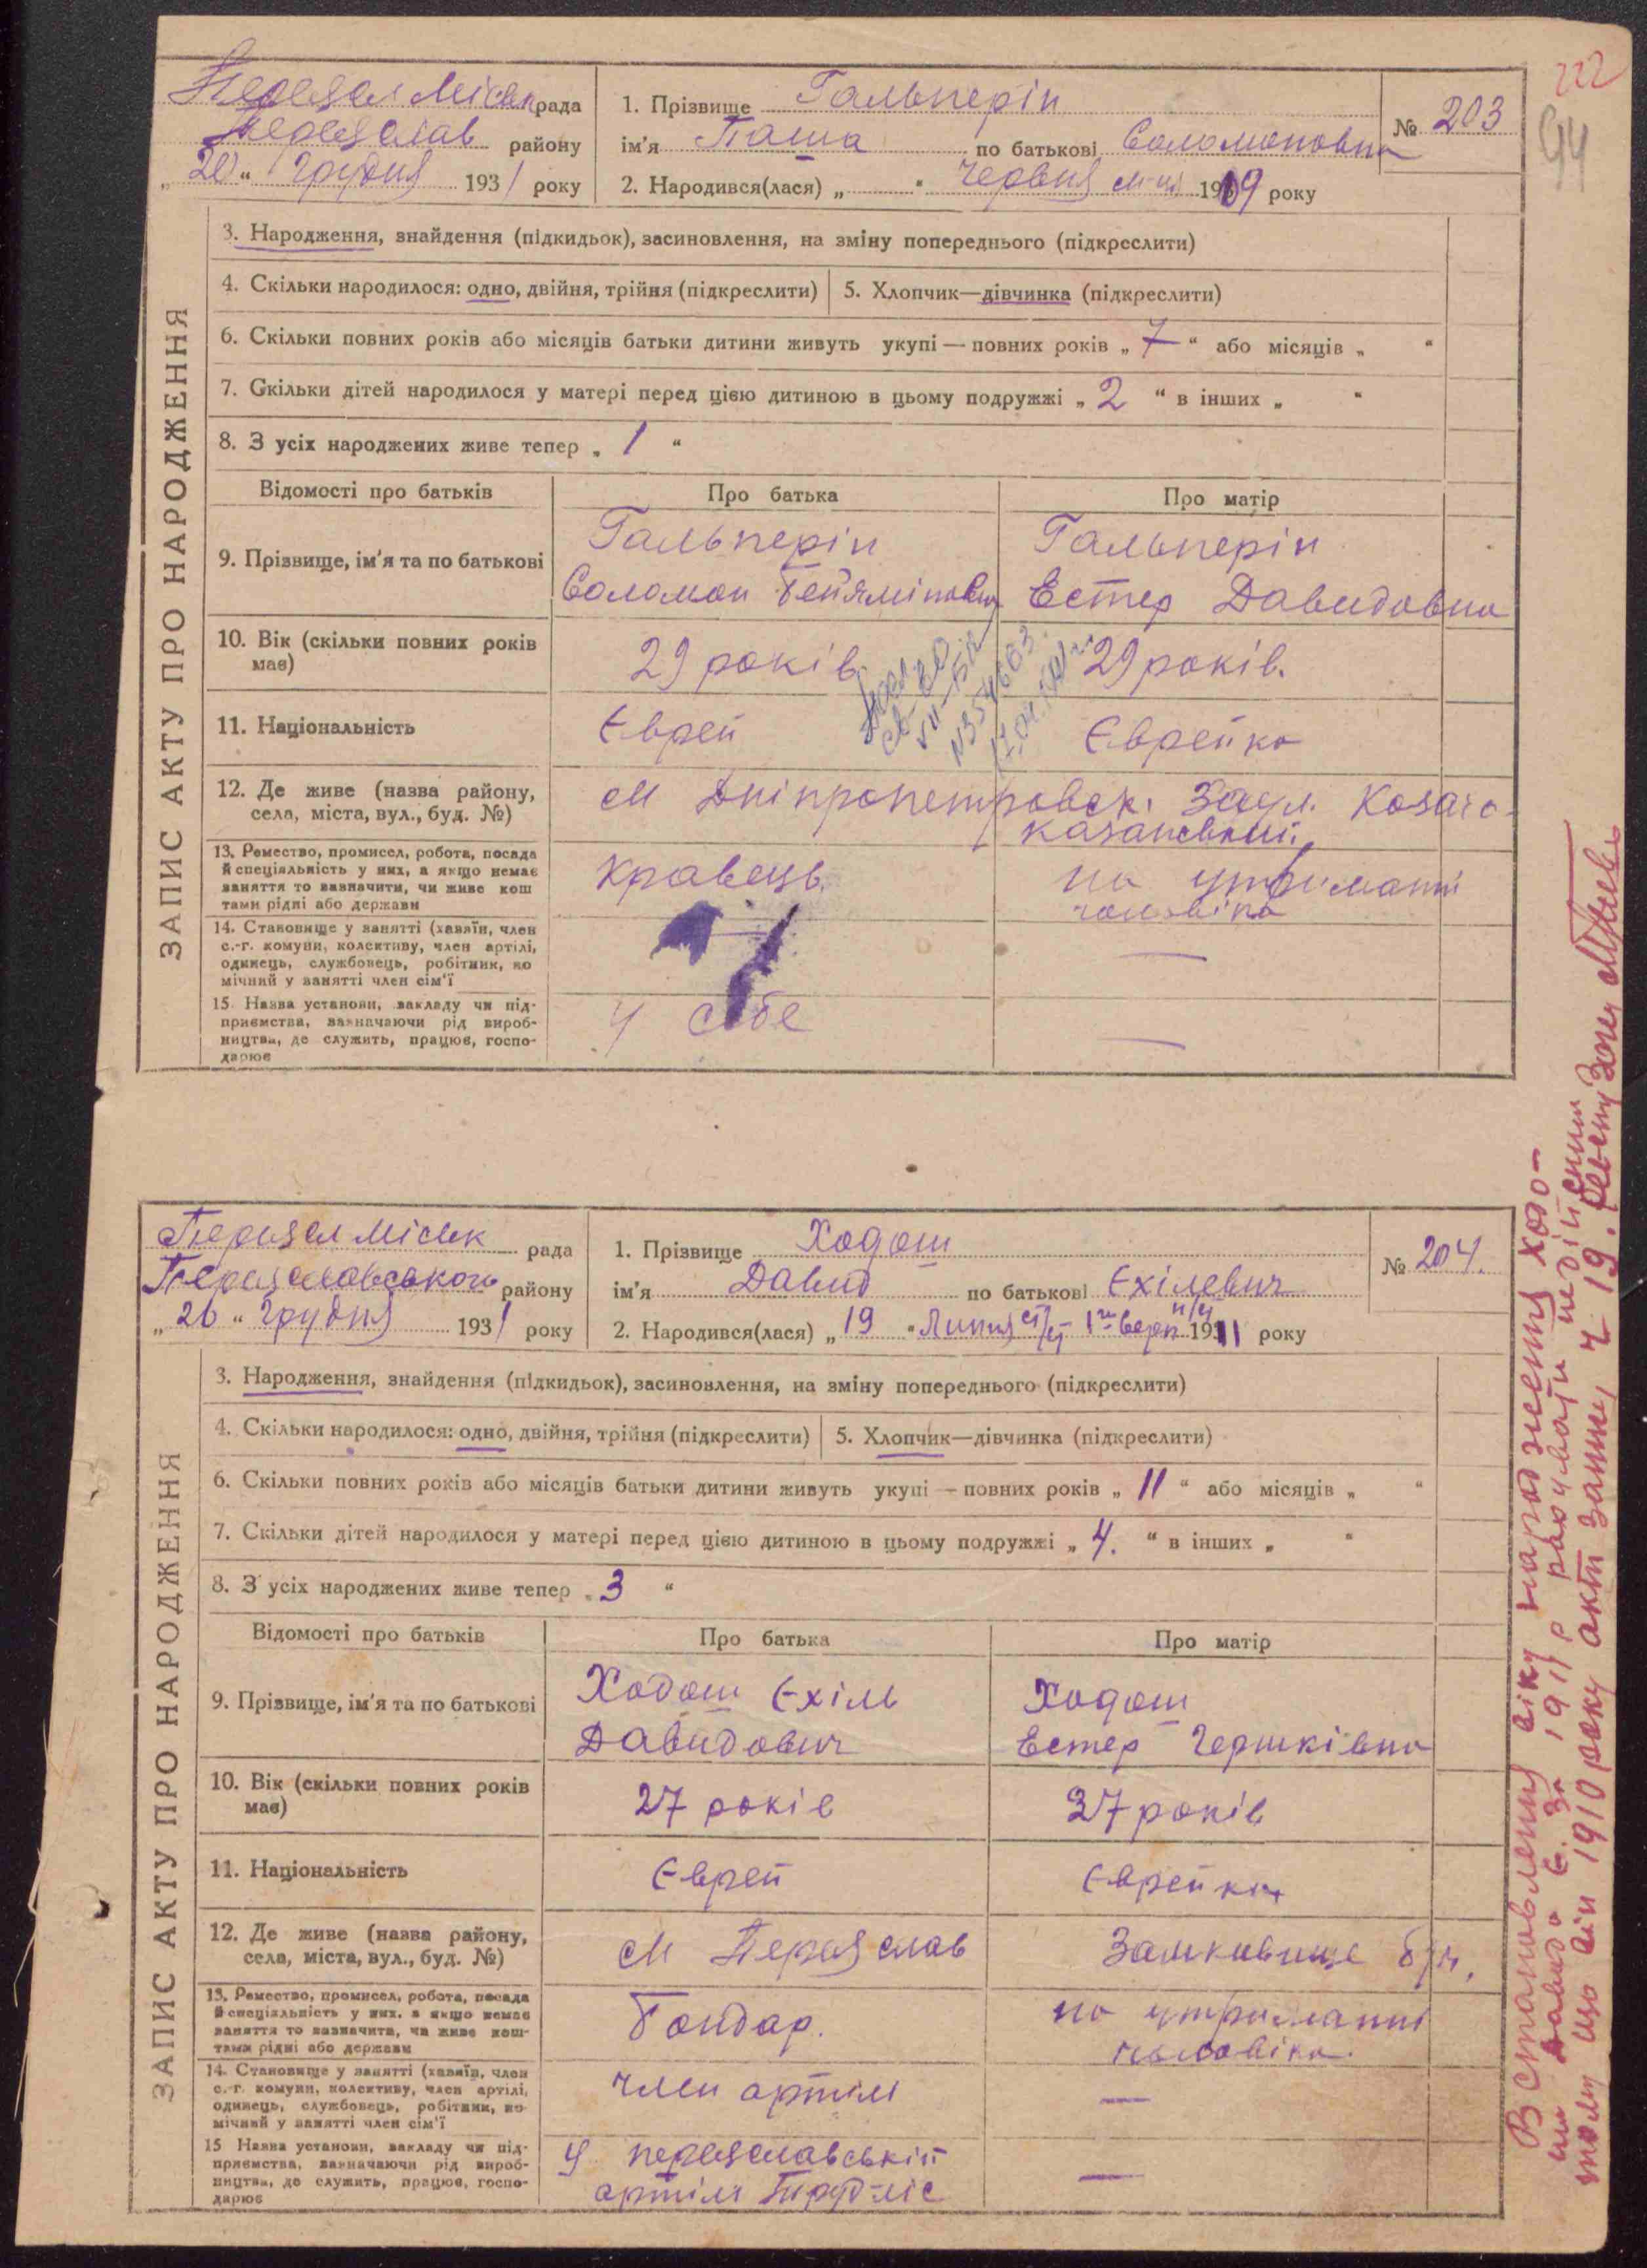 222
94
Переяслав Міськ рада
Переяслав району
„20“ Грудня 1931 року
1. Прізвище Гальперін
ім'я Паша по батькові Соломоновна
2. Народився(лася) „ “ Червня м-ця 1909 року
№ 203
ЗАПИС АКТУ ПРО НАРОДЖЕННЯ
3. Народження, знайдення (підкидьок), засиновлення, на зміну попереднього (підкреслити)
4. Скільки народилося: одно, двійня, трійня (підкреслити) 5. Хлопчик—дівчинка (підкреслити)
6. Скільки повних років або місяців батьки дитини живуть укупі — повних років „ 7 “ або місяців „ “
7. Скільки дітей народилося у матері перед цією дитиною в цьому подружжі „ 2 “ в інших „ “
8. З усіх народжених живе тепер „ 1 “
Відомості про батьків Про батька Про матір
9. Прізвище, ім'я та по батькові
Гальперін
Соломон Бейямінович
Гальперін
Естер Давидовна
10. Вік (скільки повних років
має)
29 років.
29 років.
11. Національність
Єврей
Єврейка
12. Де живе (назва району,
села, міста, вул., буд. №)
м Дніпропетровск. Заул.
казанський
13. Ремество, промисел, робота, посада
й спеціяльність у них, а якщо немає
заняття то вазначити, чи живе кош
тами рідні або держави
Кравець.
на утриманні
чоловіка
14. Становище у занятті (хазяїн, член
с.-г. комуни, колективу, член артілі,
одинець, службовець, робітник, по
мічний у занятті член сім'ї
—
15. Назва установи, закладу чи під-
приємства, зазначаючи рід вироб-
ництва, де служить, працює, госпо-
дарює
у себе
—
Переясл Міськ рада
Переяславського району
„26“ Грудня 1931 року
1. Прізвище Ходош
ім'я Давид по батькові Єхілевич
2. Народився(лася) „19“ Липня ст/ст 1го серп н/ст 1911 року
№ 204.
ЗАПИС АКТУ ПРО НАРОДЖЕННЯ
3. Народження, знайдення (підкидьок), засиновлення, на зміну попереднього (підкреслити)
4. Скільки народилося: одно, двійня, трійня (підкреслити) 5. Хлопчик—дівчинка (підкреслити)
6. Скільки повних років або місяців батьки дитини живуть укупі — повних років „ 11 “ або місяців „ “
7. Скільки дітей народилося у матері перед цією дитиною в цьому подружжі „ 4. “ в інших „ “
8. З усіх народжених живе тепер „ 3 “
Відомості про батьків Про батька Про матір
9. Прізвище, ім'я та по батькові
Ходош Єхіль
Давидович
Ходош
Естер Гершківна
10. Вік (скільки повних років
має)
27 років
37 років
11. Національність
Єврей
Єврейка
12. Де живе (назва району,
села, міста, вул., буд. №)
м Переяслав
13. Ремество, промисел, робота, посада
й спеціяльність у них, а якщо немає
заняття то вазначити, чи живе кош-
тами рідні або держави
Бондар.
на утриманні
чоловіка.
14. Становище у занятті (хазяїн, член
с.-г. комуни, колективу, член артілі,
одинець, службовець, робітник, по
мічний у занятті член сім'ї
член артілі
—
15 Назва установи, закладу чи під-
приємства, зазначаючи рід вироб-
ництва, де служить, працює, госпо-
дарює
У переяславській
артілі Трудліс
—
Встановлення віку народження Ходо-
ша Давида Є. за 1911 р рахувати недійсним
тому що він 1910 року акт запису ч 19.